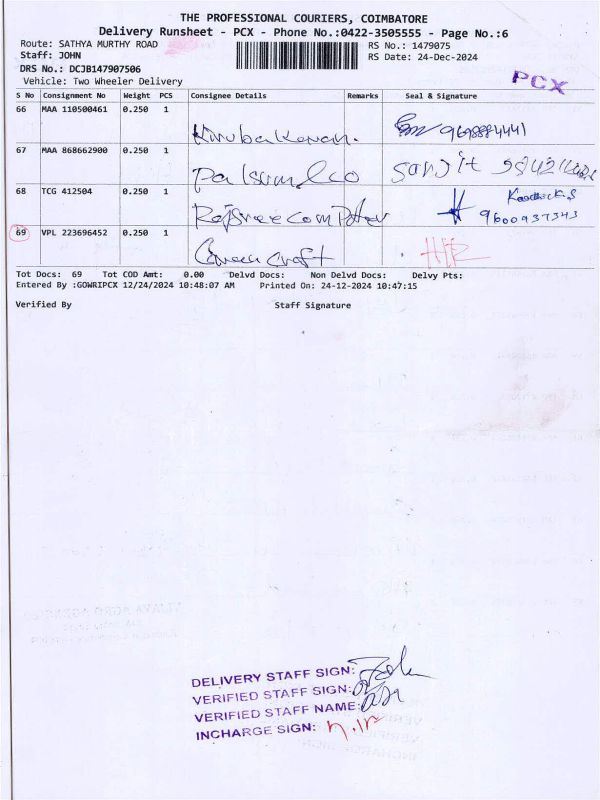 THE PROFESSIONAL COURIERS, COIMBATORE
Delivery Runsheet - PCX - Phone No.:0422-3505555 - Page No.:6
Route: SATHYA MURTHY ROAD
RS No.: 1479075
Staff: JOHN
RS Date: 24-Dec-2024
DRS No.: DCJB147907506
Vehicle: Two Wheeler Delivery
PCX
S No Consignment No Weight PCS Consignee Details Remarks Seal & Signature
66 MAA 110500461 0.250 1
Kirubakaran. 9698884441
67 MAA 868662900 0.250 1
Sanjit
68 TCG 412504 0.250 1
Rajsree computer 9600937343
69 VPL 223696452 0.250 1
Green Craft
Tot Docs: 69 Tot COD Amt: 0.00 Delvd Docs: Non Delvd Docs: Delvy Pts:
Entered By :GOWRIPCX 12/24/2024 10:48:07 AM Printed On: 24-12-2024 10:47:15
Verified By Staff Signature
DELIVERY STAFF SIGN:
VERIFIED STAFF SIGN:
VERIFIED STAFF NAME:
INCHARGE SIGN: